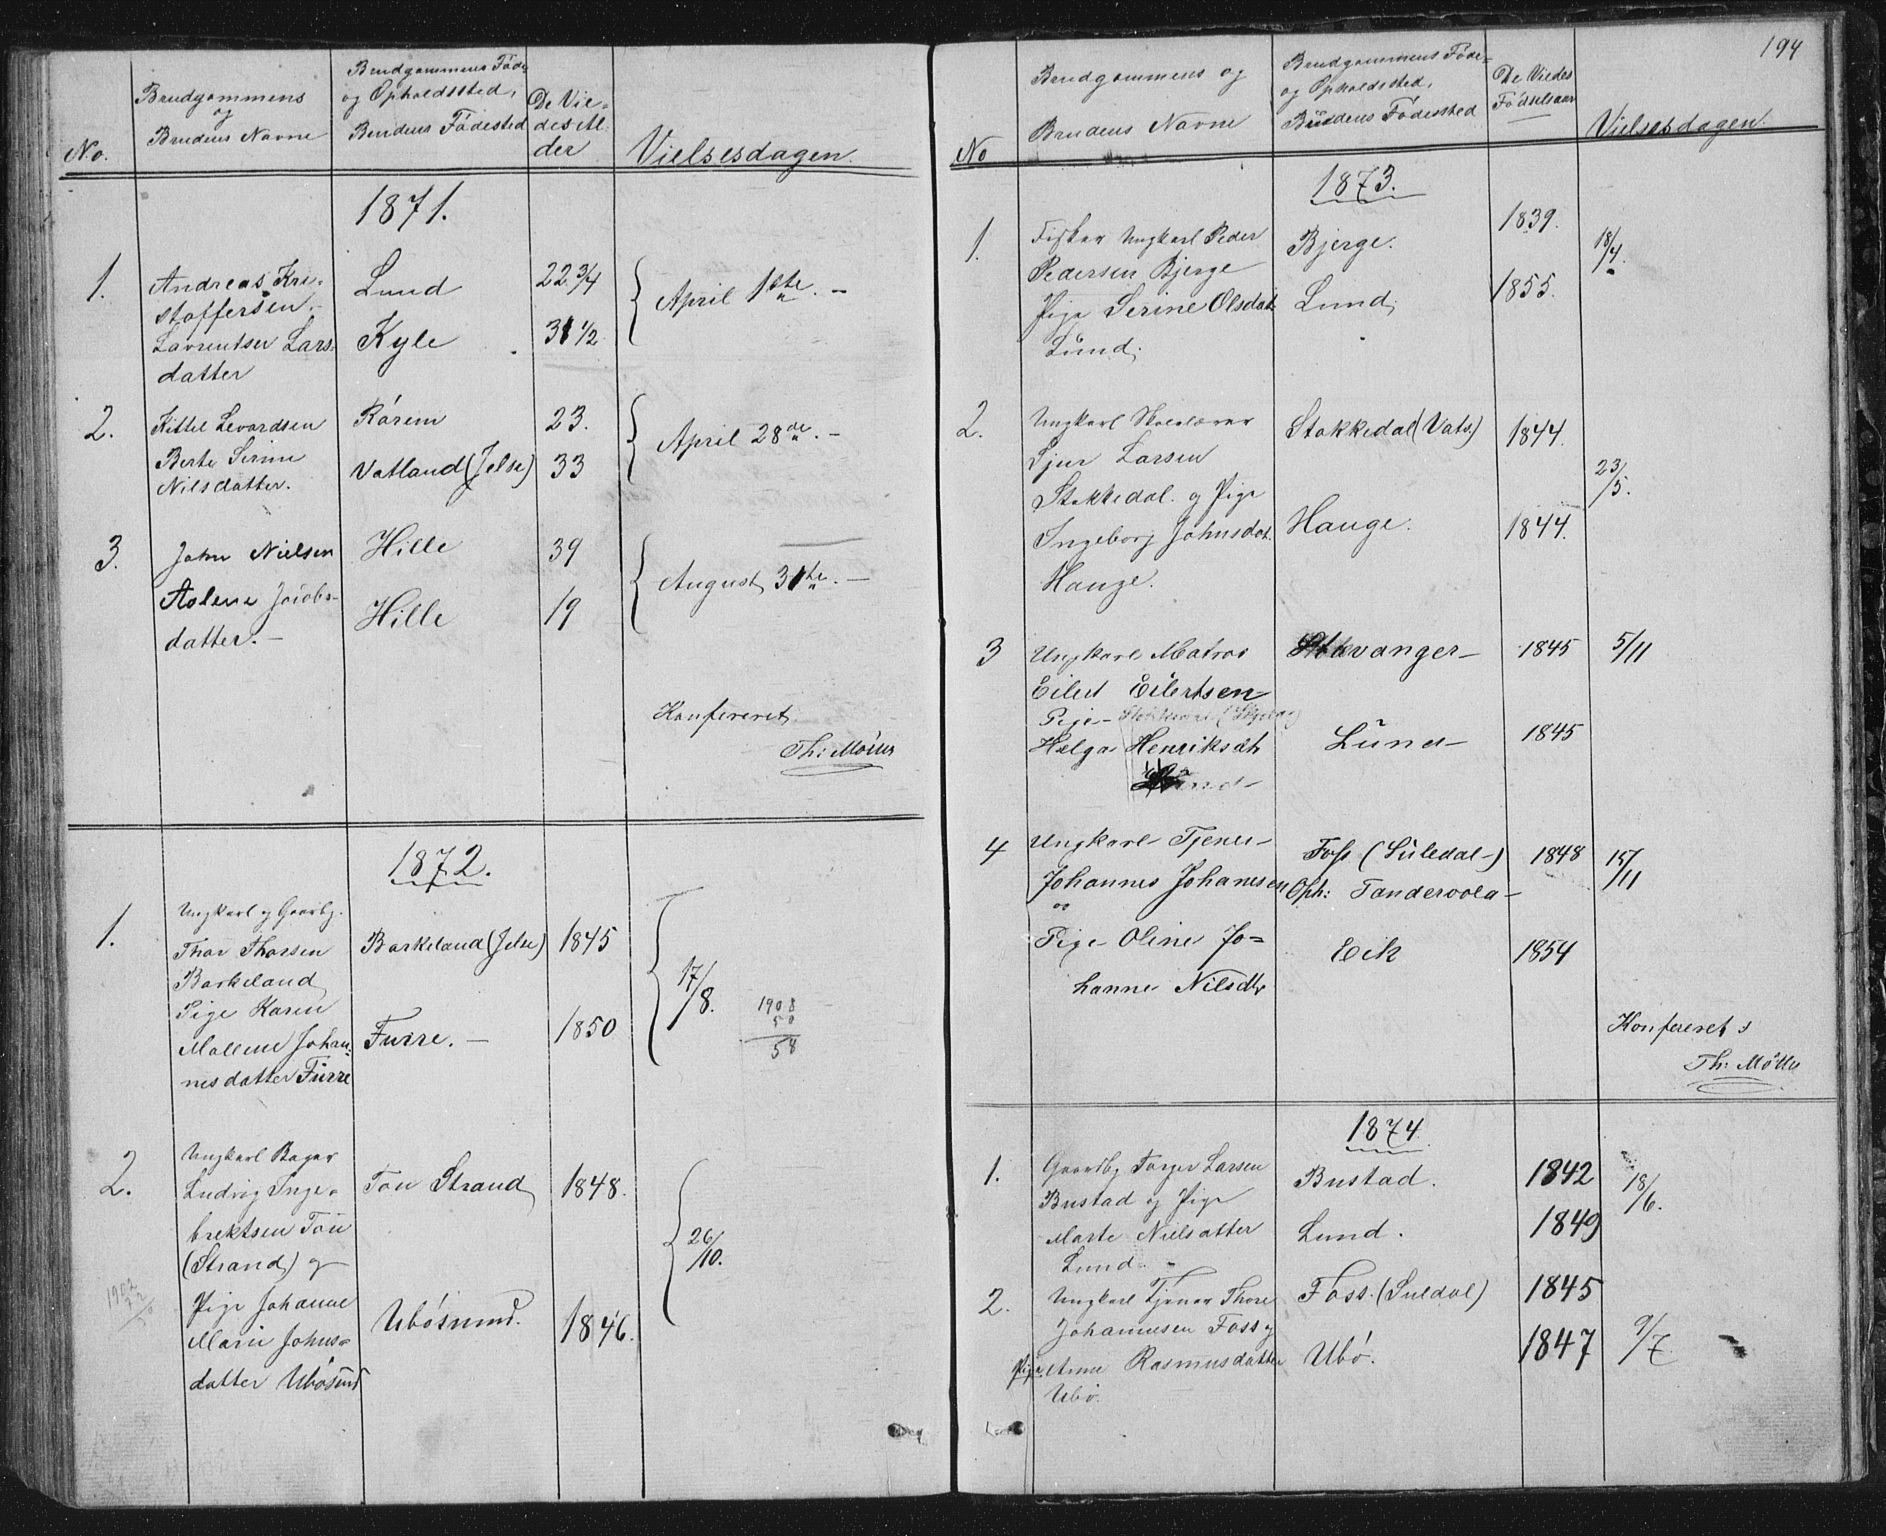 No.
Brudgommens
og
Brudens Navne
Brudgommens Føde-
og Opholdssted,
Brudens Fødested
De Vie-
des Al-
der
Vielsesdagen.
1871.
1.
Andreas Kri-
stoffersen.
Lund
22 3/4
April 1ste. -
Lavrentse Lars-
datter
Kyle
31 1/2
2.
Kittel Levardsen
Rårem
23.
April 28de. -
Berte Serine
Nilsdatter.
Vatland (Jelse)
33
3.
John Nielsen
Hille
39
August 31te. -
Aolene Jacobs-
datter. -
Hille
19
Konfereret
Th: Møller
1872.
1.
Ungkarl og Gaardbg.
Thor Thorsen
Barkeland
Barkeland (Jelse)
1845
17/8.
Pige Karen
Mallene Johan-
nesdatter Furre
Furre. -
1850
1908
50
58
2.
Ungkarl Bager
Ludvig Inge-
brektsen Tou
(Strand) og
Tou Strand
1848.
26/10.
Pige Johanne
Marie Johns-
datter Ubøsund
Ubøsund.
1846.
1902
194
No
Brudgommens og
Brudens Navne
Brudgommens Føde-
og Opholdssted,
Brudens Fødested
De Viedes
Fødselsaar
Vielsesdagen.
1873.
1.
Fisker Ungkarl Peder
Pedersen Bjerge
Bjerge.
1839.
18/4.
Pige Serine Olsdat.
Lund.
Lund.
1855.
2.
Ungkarl Skolelærer
Sjur Larsen
Stakkedal. og Pige
Stakkedal (Vats)
1844.
23/5.
Ingeborg Johnsdat.
Hauge.
Hauge.
1844.
3
Ungkarl Matros
Eilert Eilertsen
Stavanger-
1845
5/11
Pige-
Helga Henriksdt
Lund-
Lund-
1845
4
Ungkarl Tjener-
Johannes Johannesen
og
Foss (Suledal-)
Oph: Tandervola-
1848
15/11
Pige- Oline Jo-
hanne Nilsdtr
Eik
1854
Konfereret
Th: Møller
1874.
1.
Gaardbg Torger Larsen
Bustad og Pige
Bustad.
1842
18/6.
Marte Nielsdatter
Lund.
Lund.
1849
2.
Ungkarl Tjener Thore
Johannesen Foss og
Foss. (Suldal)
1845
Pige Anna Rasmusdatter
Ubø.
Ubø.
1847
9/7.